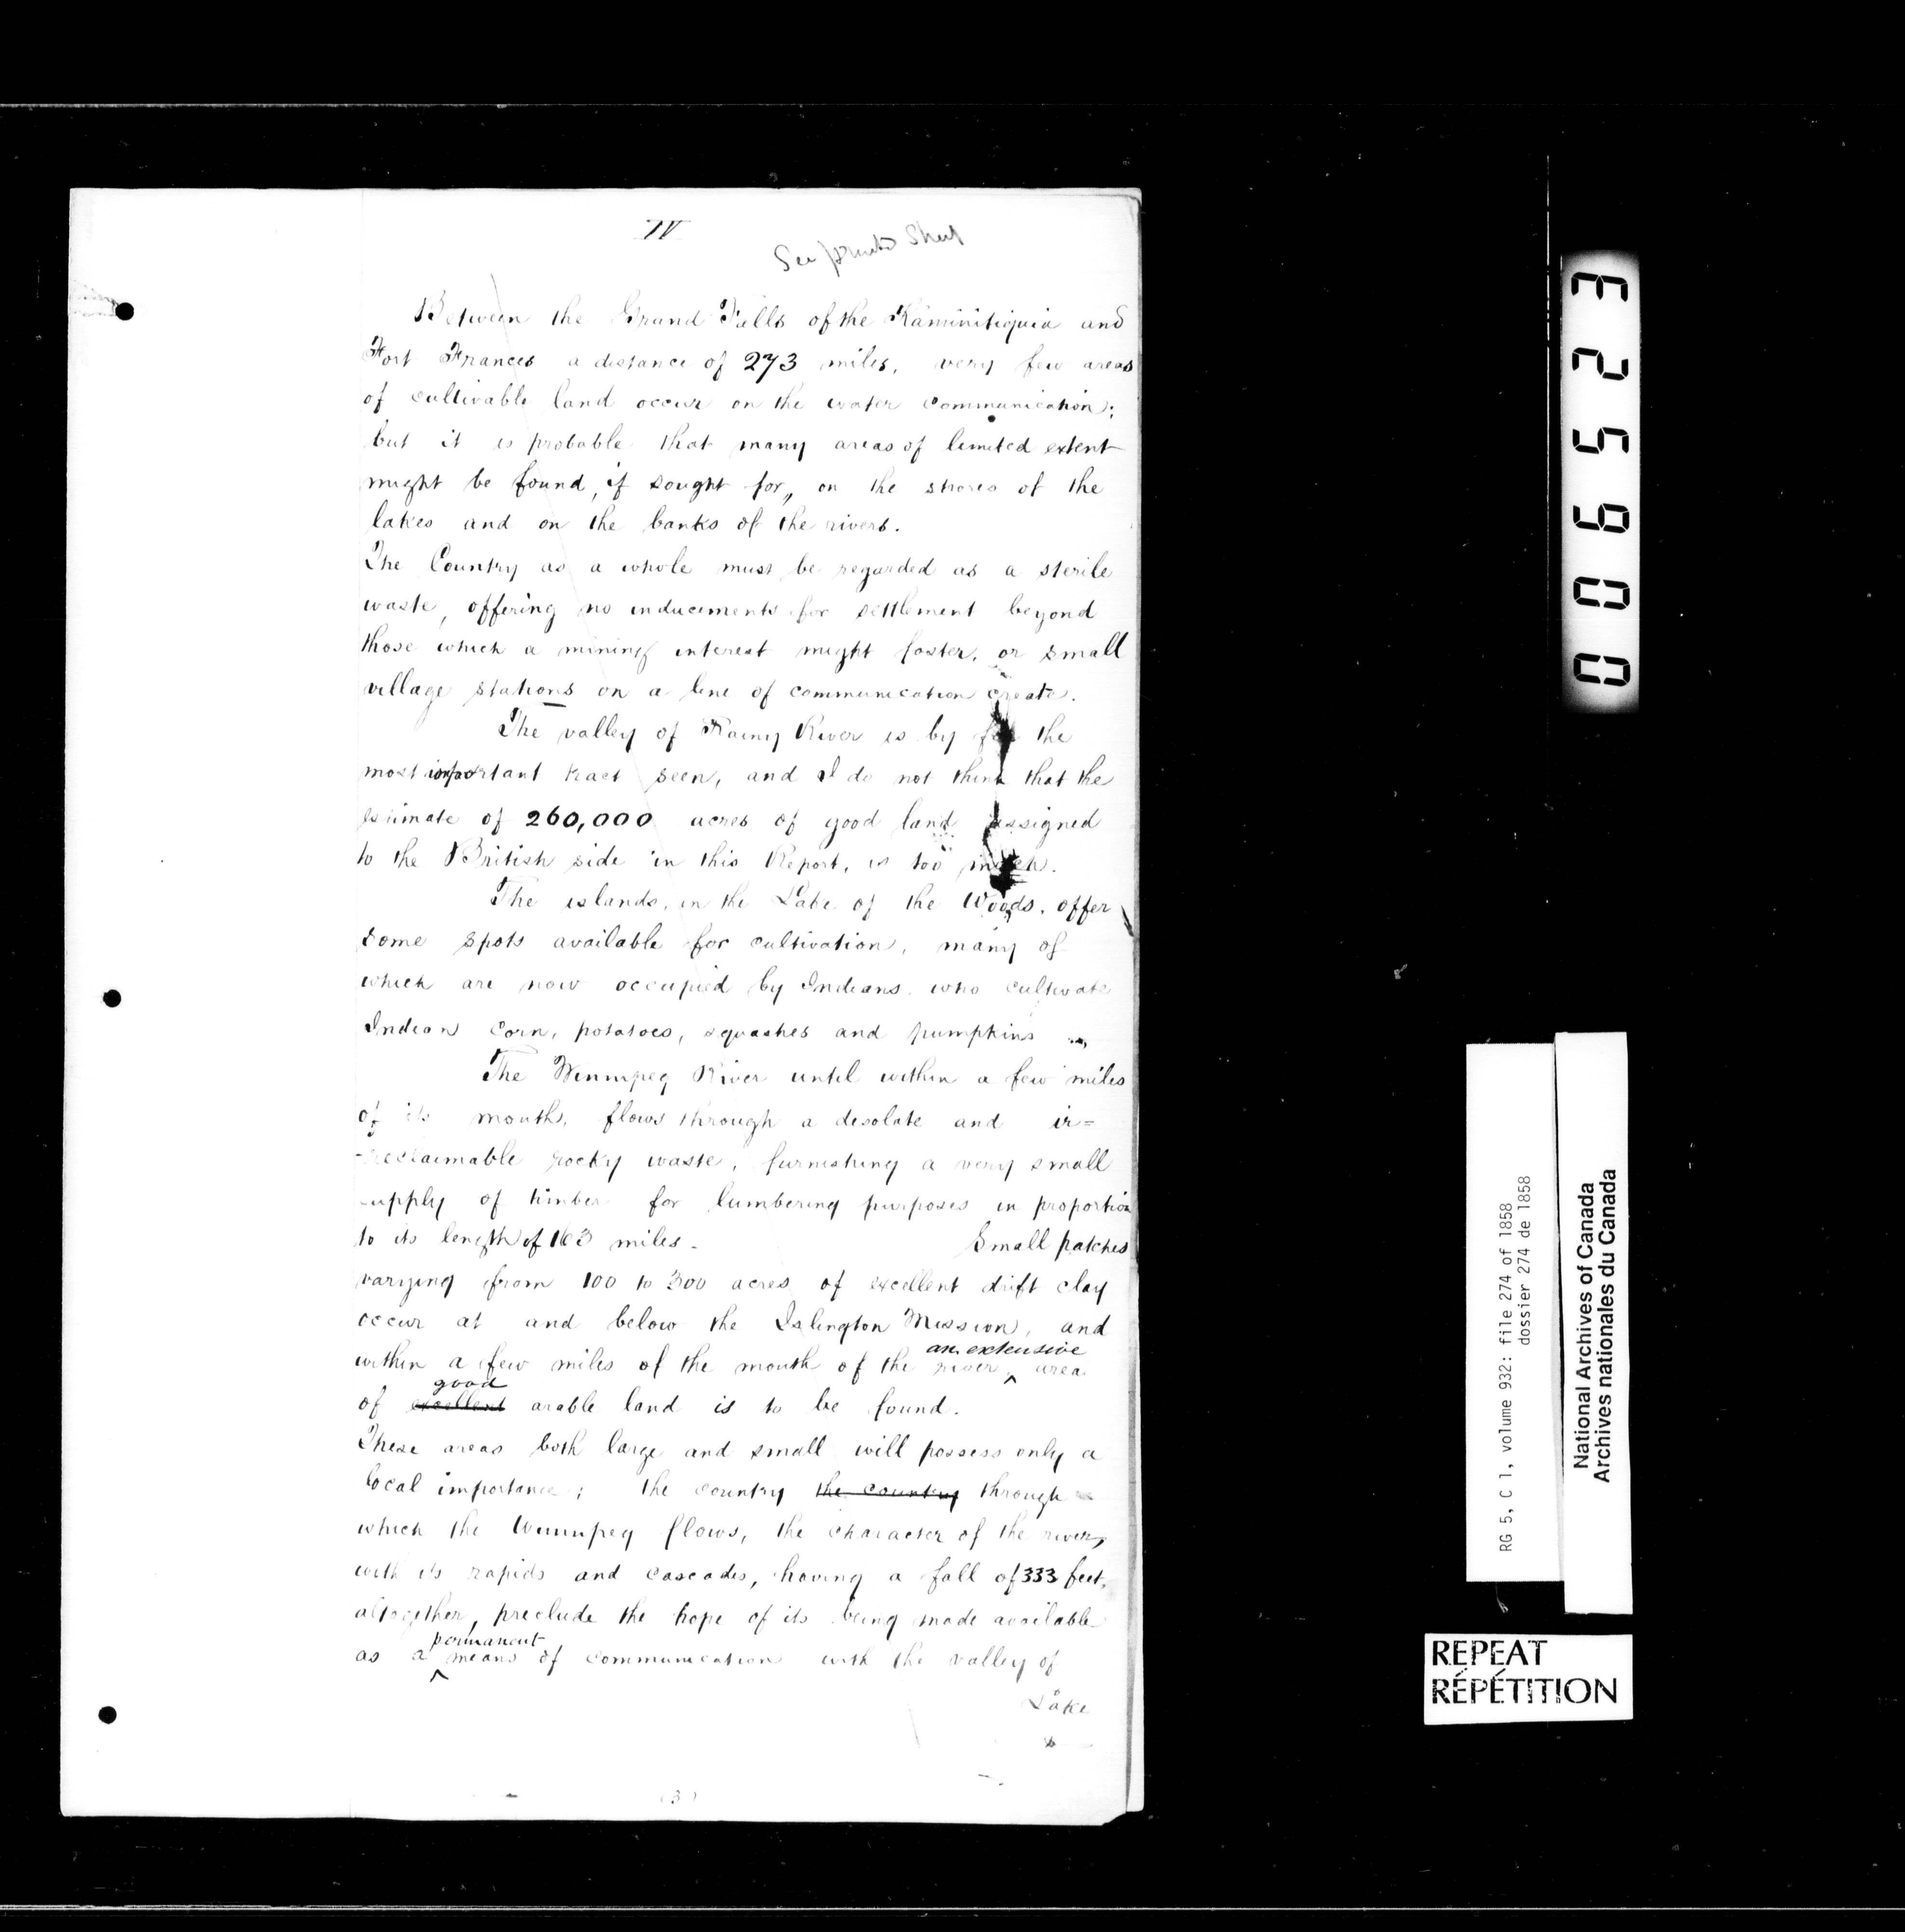 IV
See printed Sheet
Between the Grand Falls of the Kaministiquia and
Fort Frances a distance of 273 miles, very few areas
of cultivable land occur on the water communication;
but it is probable that many areas of limited extent
might be found, if sought for, on the shores of the
lakes and on the banks of the rivers.
The Country as a whole must be regarded as a sterile
waste, offering no inducements for settlement beyond
those which a mining interest might foster, or small
village stations on a line of communication create.
The valley of Rainy River is by far the
most important tract seen, and I do not think that the
estimate of 260,000 acres of good land assigned
to the British side in this Report, is too much.
The islands, in the Lake of the Woods, offer
some spots available for cultivation, many of
which are now occupied by Indians, who cultivate
Indian Corn, potatoes, squashes and pumpkins
The Winnipeg River until within a few miles
of its mouth, flows through a desolate and ir=
-reclaimable rocky waste, furnishing a very small
supply of timber for lumbering purposes in proportion
to its length of 163 miles. Small patches
varying from 100 to 300 acres of excellent drift clay
occur at and below the Islington Mission, and
an extensive
within a few miles of the mouth of the river ^ area
good
of excellent arable land is to be found.
These areas both large and small will possess only a
local importance; the country the country through
which the Winnipeg flows, the character of the river,
with its rapids and cascades, having a fall of 333 feet,
altogether, preclude the hope of its being made available
permanent
as a ^ means of communication with the valley of
Lake
(3)
006523
RG 5, C 1, volume 932: file 274 of 1858
dossier 274 de 1858
National Archives of Canada
Archives nationales du Canada
REPEAT
RÉPÉTITION